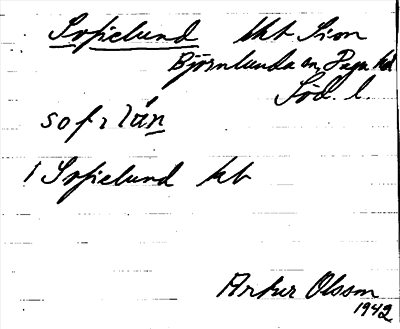 Sofielund lht Sion
Björnlunda sn, Daga hd
Söd. l.
sofilún
1 Sofielund lht
Artur Olsson
1942